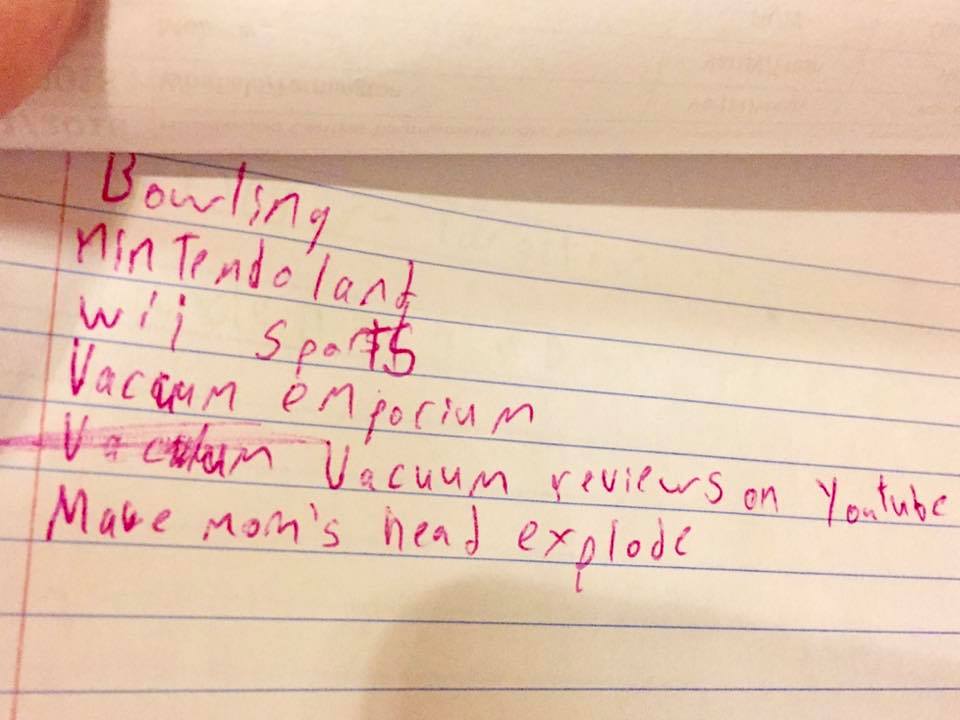 Bowling
Nintendoland
Wii Sports
Vacuum emporium
Vacuum Vacuum reviews on Youtube
Make mom's head explode